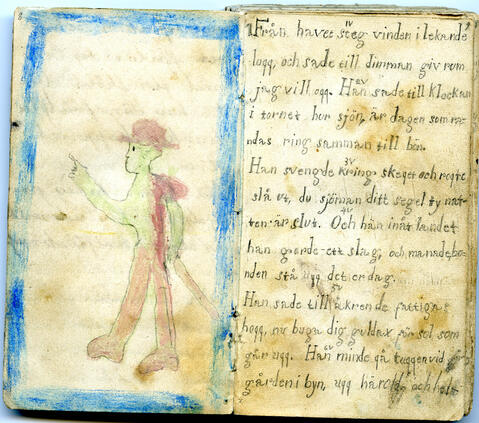 8
9
1V
Från havet steg vinden i lekande
logg, och sade till dimman giv rum
2V
jag vill ogg. Han sade till klockan
i tornet hur sjön, är dagen som ran-
das ring samman till bön.
3V
Han svengde kring skeget och rogte
slå ut, du sjöman ditt segel ty nat-
4V
ten är slut. Och hän inåt landet
han gorde ett slag, och manade bo-
nden stå ugg det er dag.
5V
Han sade till åkrende fattiga
hogg, nu buga dig guldax för sol som
6V
går ugg. Han minde gå tuggen vid
gården i byn, ugg härold och